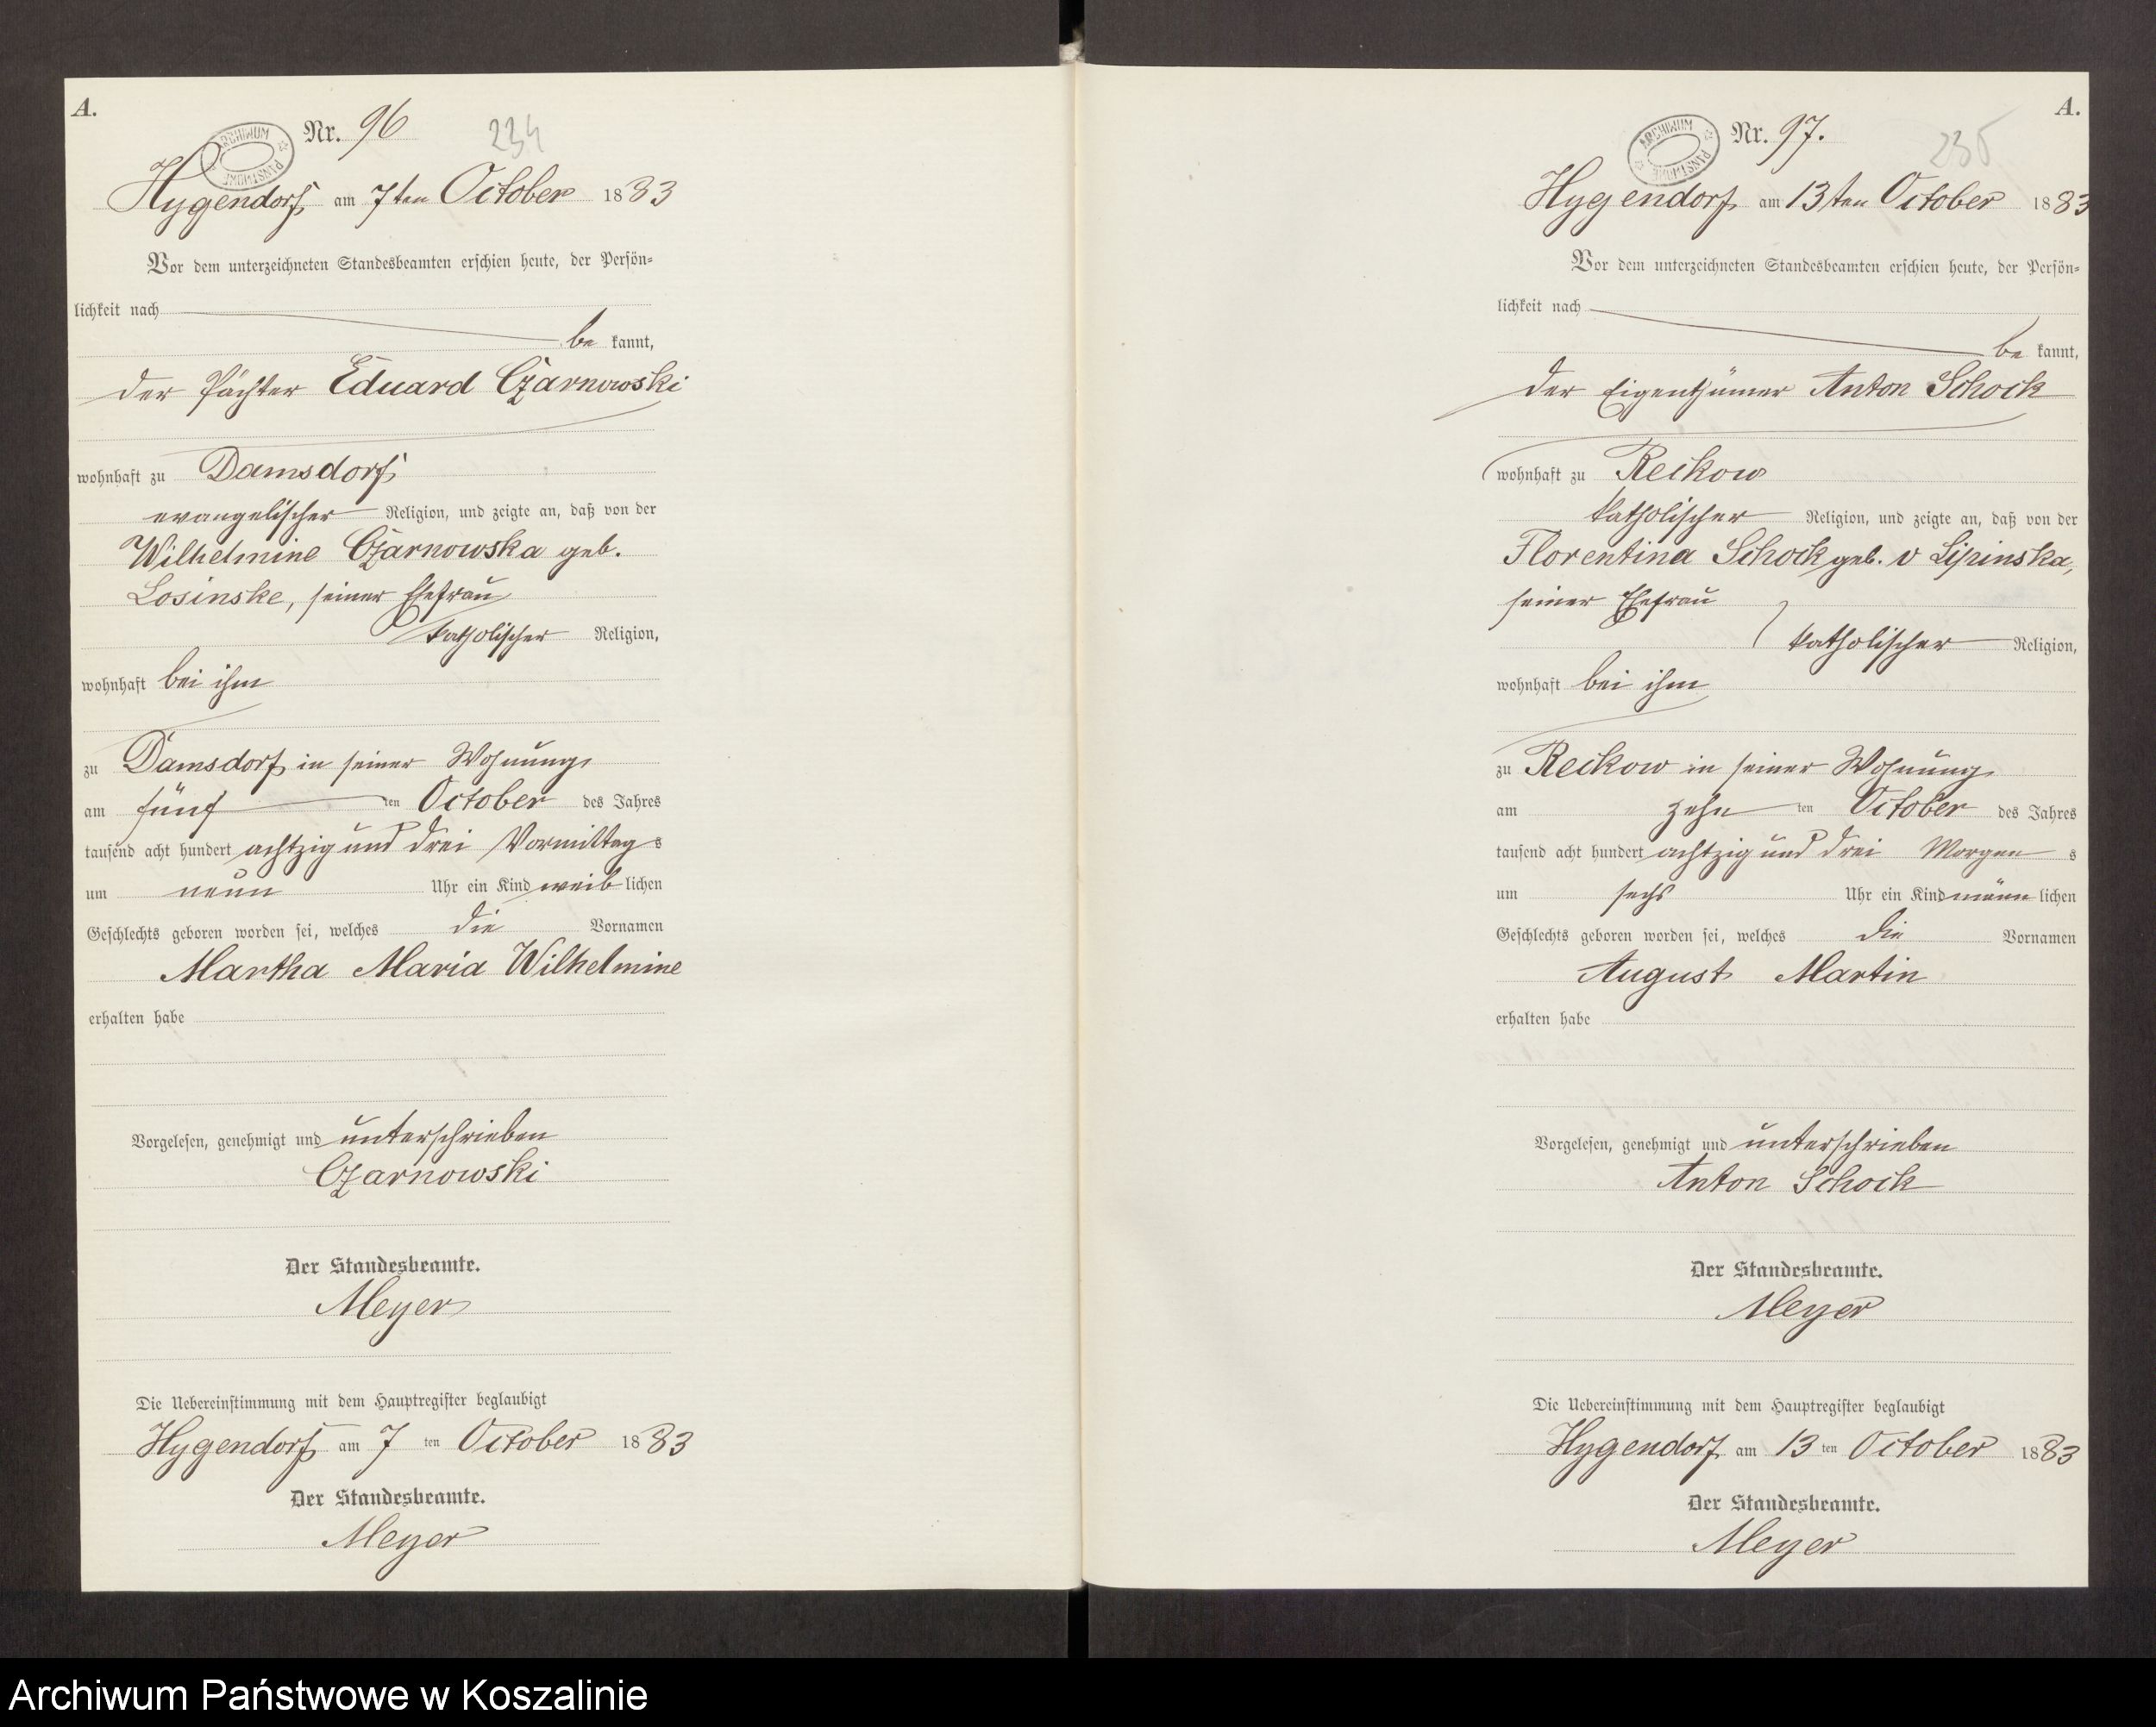 A.
ARCHIWUM PAŃSTWOWE
Nr. 96
234
Hygendorf am 7ten October 1883
Vor dem unterzeichneten Standesbeamten erschien heute, der Persön=
lichkeit nach
be kannt,
der Pächter Eduard Czarnowski
wohnhaft zu Damsdorf
evangelischer Religion, und zeigte an, daß von der
Wilhelmine Czarnowska geb.
Losinske, seiner Ehefrau
katholischer Religion,
wohnhaft bei ihm
zu Damsdorf in seiner Wohnung
am fünf ten October des Jahres
tausend acht hundert achtzig und drei Vormittag s
um neun Uhr ein Kind weib lichen
Geschlechts geboren worden sei, welches die Vornamen
Martha Maria Wilhelmine
erhalten habe
Vorgelesen, genehmigt und unterschrieben
Czarnowski
Der Standesbeamte.
Meyer
Die Uebereinstimmung mit dem Hauptregister beglaubigt
Hygendorf am 7 ten October 1883
Der Standesbeamte.
Meyer
A.
ARCHIWUM PAŃSTWOWE
Nr. 97.
235
Hygendorf am 13ten October 1883
Vor dem unterzeichneten Standesbeamten erschien heute, der Persön=
lichkeit nach
be kannt,
der Eigenthümer Anton Schock
wohnhaft zu Reckow
katholischer Religion, und zeigte an, daß von der
Florentina Schock geb. v Lipinska,
seiner Ehefrau
katholischer Religion,
wohnhaft bei ihm
zu Reckow in seiner Wohnung
am zehn ten October des Jahres
tausend acht hundert achtzig und drei Morgen s
um sechs Uhr ein Kind männ lichen
Geschlechts geboren worden sei, welches die Vornamen
August Martin
erhalten habe
Vorgelesen, genehmigt und unterschrieben
Anton Schock
Der Standesbeamte.
Meyer
Die Uebereinstimmung mit dem Hauptregister beglaubigt
Hygendorf am 13 ten October 1883
Der Standesbeamte.
Meyer
Archiwum Państwowe w Koszalinie